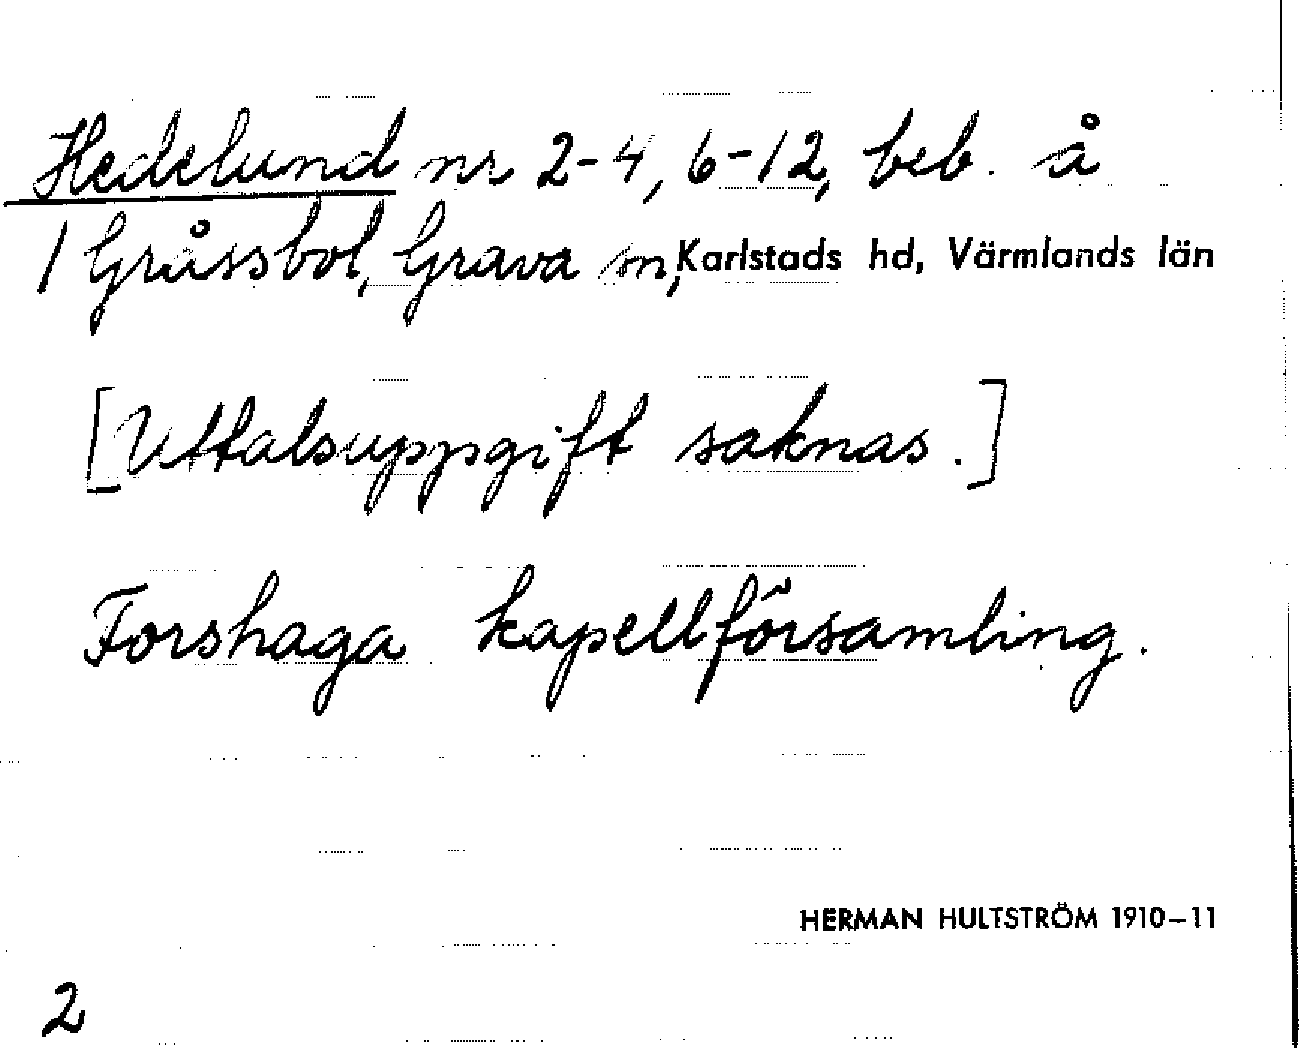 Hedelund nr 2-4, 6-12, beb. å
1 Gråssbol, Grava sn, Karlstads hd, Värmlands län
[Uttalsuppgift saknas.]
Forshaga kapellförsamling.
HERMAN HULTSTRÖM 1910–11
2